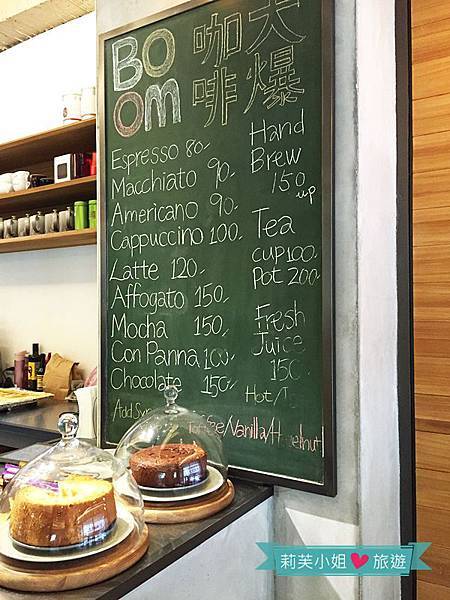 BO
OM
咖啡
大爆
Espresso 80-
Macchiato 90-
Americano 90-
Cappuccino 100-
Latte 120-
Affogato 150-
Mocha 150-
Con Panna 100-
Chocolate 150-
Add Sy
Toffee/Vanilla/Hazelnut
Hand
Brew
150 up
Tea
Cup 100
Pot 200
Fresh
Juice
150
Hot/
莉芙小姐❤旅遊